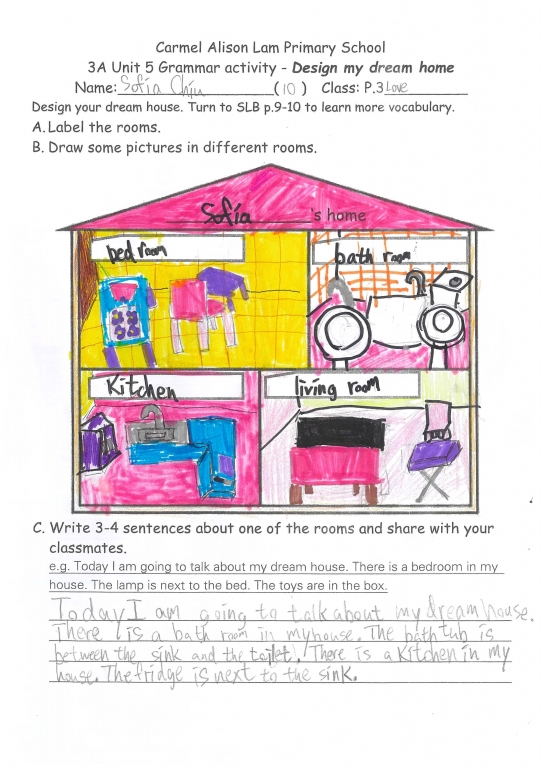 Carmel Alison Lam Primary School
3A Unit 5 Grammar activity - Design my dream home
Name: Sofia Chiu (10) Class: P.3 Love
Design your dream house. Turn to SLB p.9-10 to learn more vocabulary.
A. Label the rooms.
B. Draw some pictures in different rooms.
Sofia 's home
bed room
bath room
Kitchen
living room
C. Write 3-4 sentences about one of the rooms and share with your
classmates.
e.g. Today I am going to talk about my dream house. There is a bedroom in my
house. The lamp is next to the bed. The toys are in the box.
Today I am going to talk about my dream house.
There is a bath room in my house. The bath tub is
between the sink and the toilet. There is a Kitchen in my
house. The fridge is next to the sink.